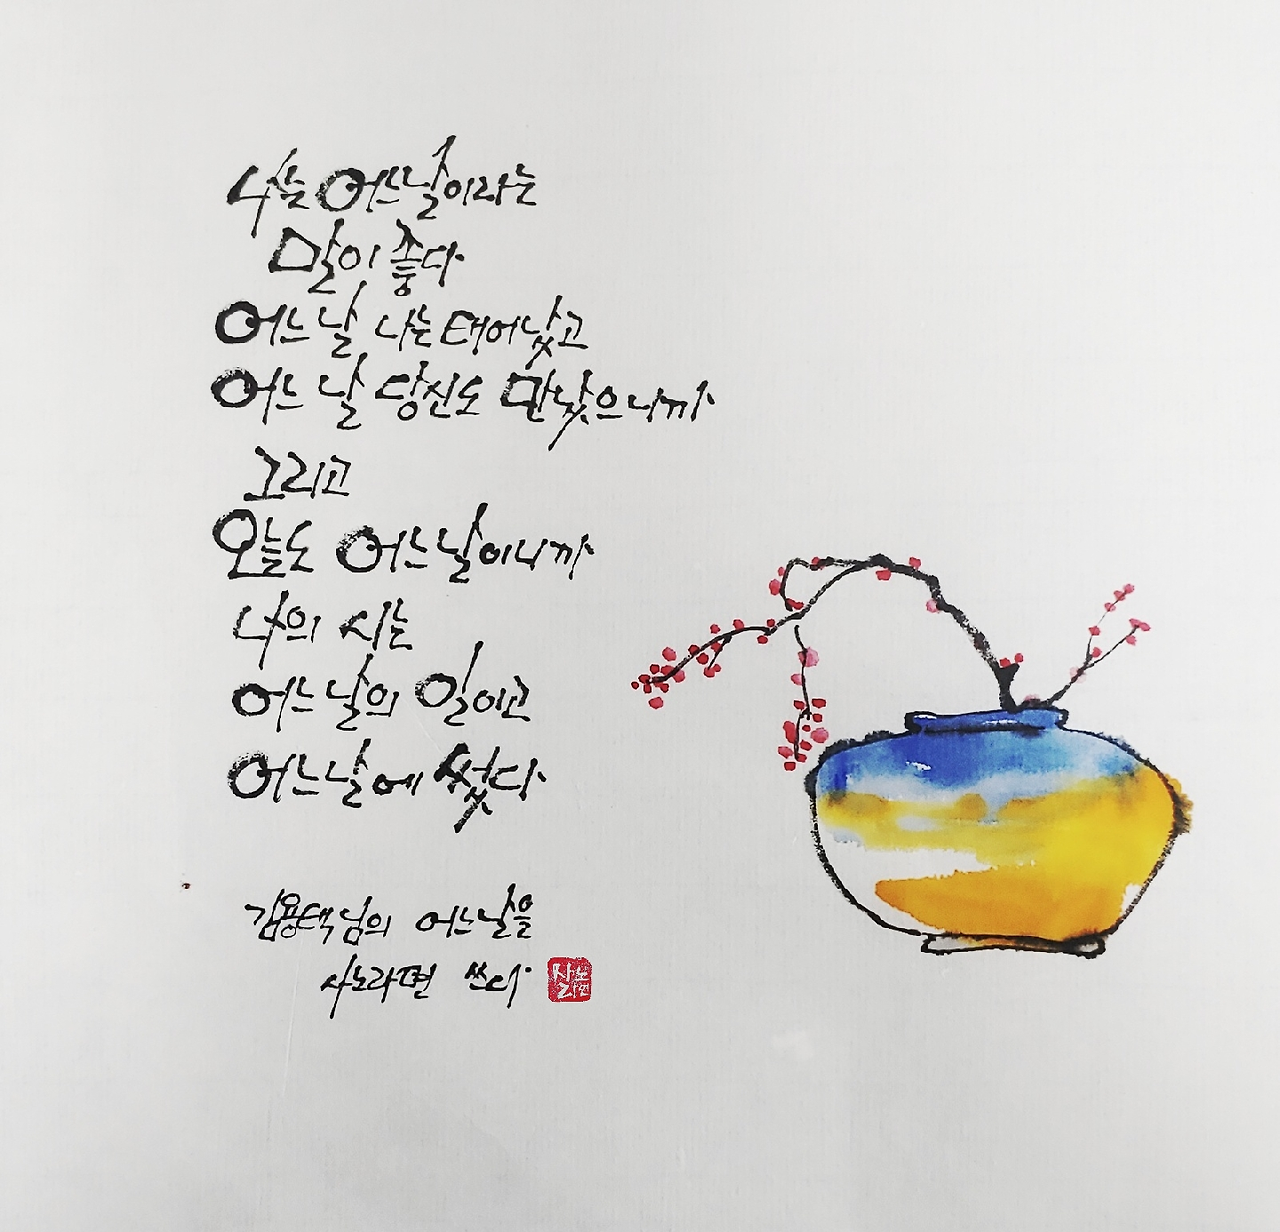 나는 어느날이라는
말이 좋다
어느 날 나는 태어났고
어느 날 당신도 만났으니까
그리고
오늘도 어느날이니까
나의 시는
어느날의 일이고
어느날에 썼다
김용택님의 어느날을
사노라면 쓰다
사노
라면